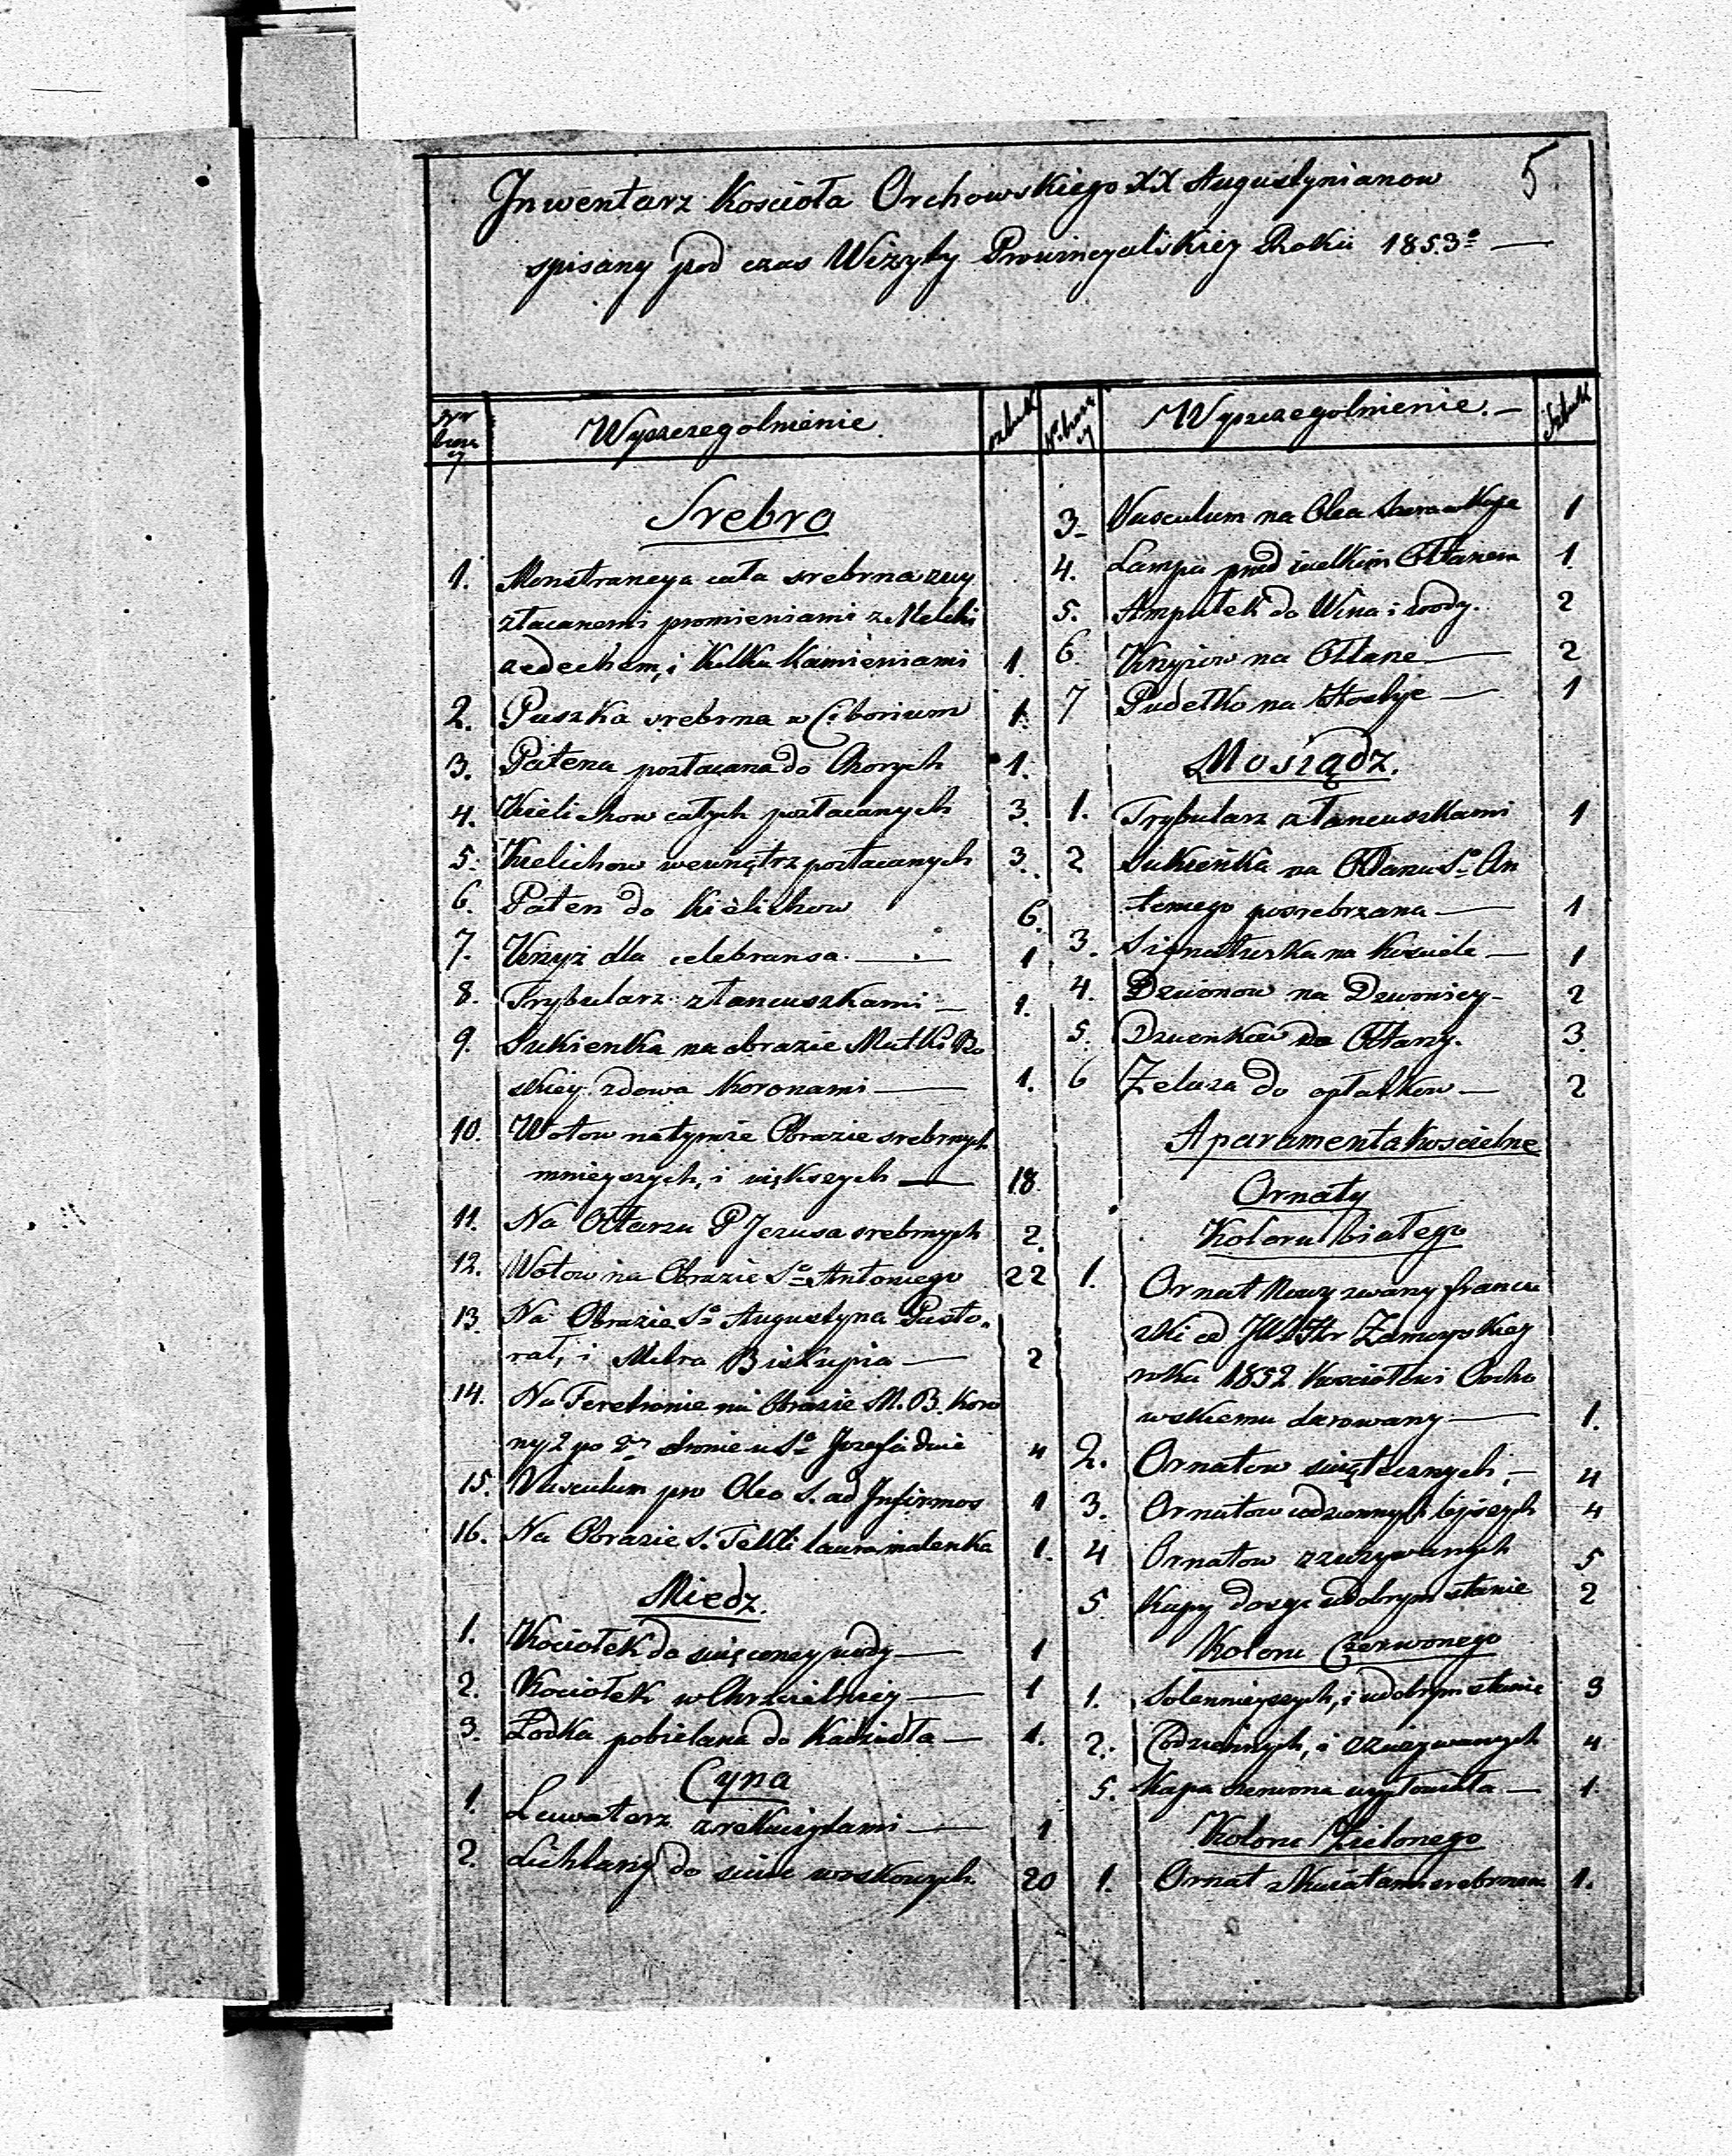 5
Inwentarz Kościoła Orchowskiego XX Augustynianow
spisany pod czas Wizyty Prowincyalskiey Roku 1853º
Wyszczegolnienie
sztuk
Srebro
1. Monstrancya cała srebrna z wy
złacanemi promieniami z Melchi
zedechem, i kilku kamieniami 1.
2. Puszka srebrna w Ciborium 1.
3. Patena pozłacana do Chorych 1.
4. Kielichow całych pozłacanych 3.
5. Kielichow wewnątrz pozłacanych 3.
6. Paten do Kielichow 6.
7. Krzyż dla celebransa 1
8. Trybularz z łancuszkami 1.
9. Sukienka na obrazie Matki Bo
skiey z dowa Koronami 1.
10. Wotow na tymże Obrazie srebrnych
mnieyszych, i większych 18.
11. Na Ołtarzu P Jezusa srebrnych 2.
12. Wotow na Obrazie Sº Antoniego 22
13. Na Obrazie Sº Augustyna Pasto-
rał, i Mitra Biskupia 2
14. Na Feretronie na Obrazie M. B. Koro
ny 2 po stronie u Sº Jozefa dwie 4
15. Vasculum pro Oleo S. ad Infirmos 1
16. Na Obrazie S. Tekli laura malenka 1.
Miedz.
1. Kociołek do święconey wody 1
2. Kociołek w Chrzcielnicy 1
3. Łodka pobielana do Kadzidła 1.
Cyna
1. Lawatorz 1
2. Lichtarzy do swiec woskowych 20
Wyszczegolnienie.
Sztuk
3. Vasculum na Olea 1
4. Lampa przed wielkim Ołtarzem 1.
5. Ampułek do Wina i wody. 2
6. Krzyżow na Ołtarze 2
7 Pudełko na Hostye 1
Mosiądz.
1. Trybularz z łancuszkami 1
2 Sukienka na Ołtarzu Sº An
toniego posrebrzana 1
3. Signaturka na Kosciele 1
4. Dzwonow na Dzwonicy 2
5. Dzwonkow do Ołtarzy. 3.
6 Żelaza do opłatkow 2
Aparamenta koscielne
Ornaty
Koloru białego
1. Ornat Nowy zwany francu
zki od JW Hr Zamoyskiey
roku 1852 Kosciołowi Orcho
wskiemu darowany 1.
2. Ornatow swiątecznych 4
3. Ornatow codziennych lepszych 4
4 Ornatow zzużywanych 5
5. Kapy dosyc w dobrym stanie 2
Koloru Czerwonego
1. Solennieyszych, i w dobrym stanie 3
2. Codziennych, i zzużywanych 4
5. Kapa czerwona wypłowiała 1.
Koloru Zielonego
1. Ornat z kwiatami srebrnemi 1.